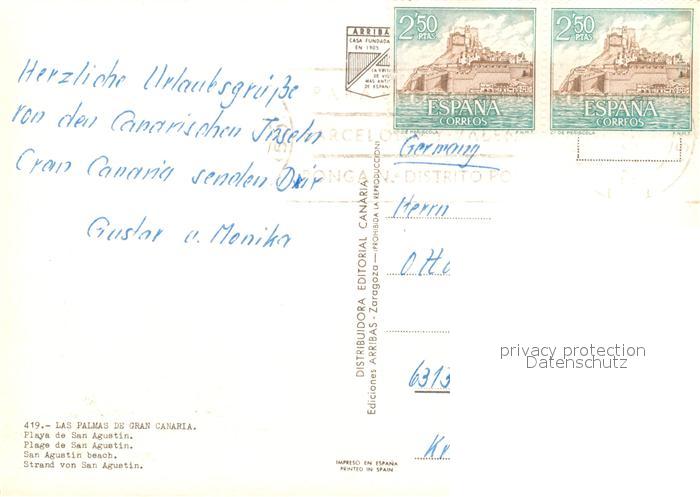 Herzliche Urlaubsgrüße
von den Canarischen Inseln
Gran Canaria senden Dir
Gustav u. Monika
419.- LAS PALMAS DE GRAN CANARIA.
Playa de San Agustin.
Plage de San Agustin.
San Agustin beach.
Strand von San Agustin.
ARRIBAS
CASA FUNDADA
EN 1905
DISTRIBUIDORA EDITORIAL CANARIA
Ediciones ARRIBAS - Zaragoza - (PROHIBIDA LA REPRODUCCION)
IMPRESO EN ESPAÑA
PRINTED IN SPAIN
2'50
PTAS
ESPAÑA
CORREOS
Cº DE PEÑISCOLA
F.N.M.T.
2'50
PTAS
ESPAÑA
CORREOS
Cº DE PEÑISCOLA
F.N.M.T.
BARCELO
PONGA
N.- DISTRITO PO
Germany
Herrn
Otto
6313
Kr
privacy protection
Datenschutz